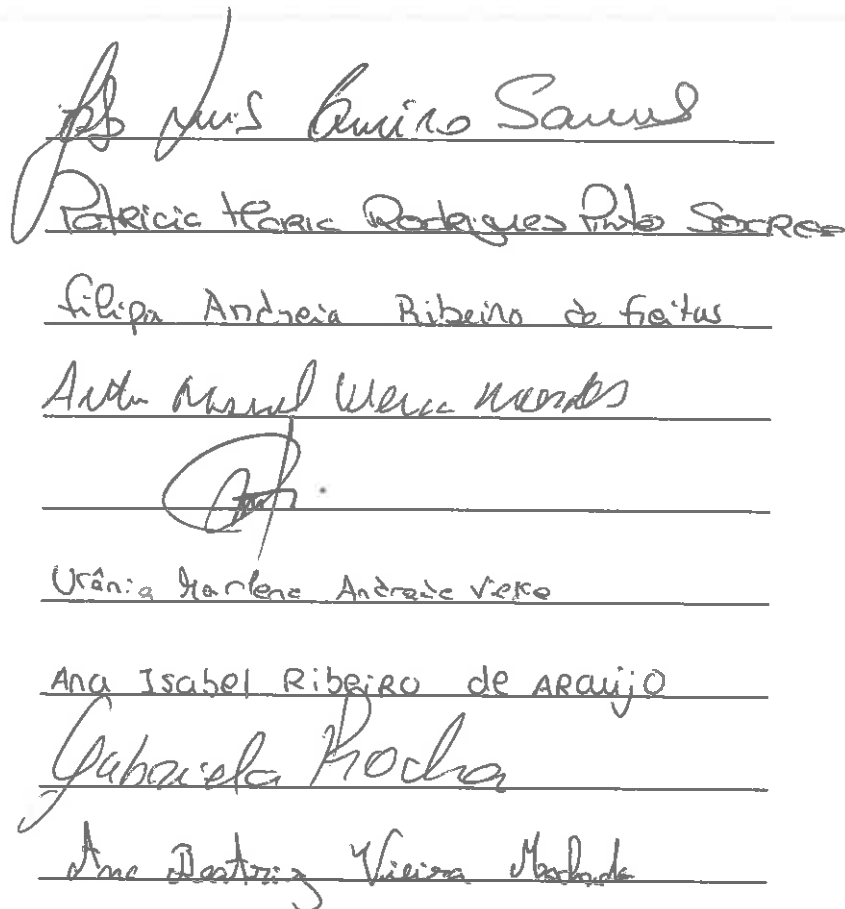 Luis
Patricia Maria Rodrigues Pinto Soares
Filipa Andreia Ribeiro de Freitas
Manuel Mendes
Urânia Marlene Andrade Vieira
Ana Isabel Ribeiro de Araújo
Gabriela Rocha
Ana Beatriz Vieira Machado